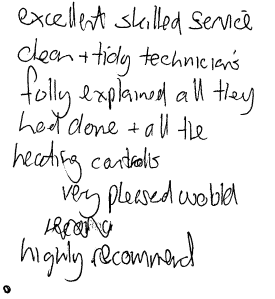 excellent skilled service
clean + tidy technician's
fully explained all they
had done + all the
heating controls
very pleased would
highly recommend